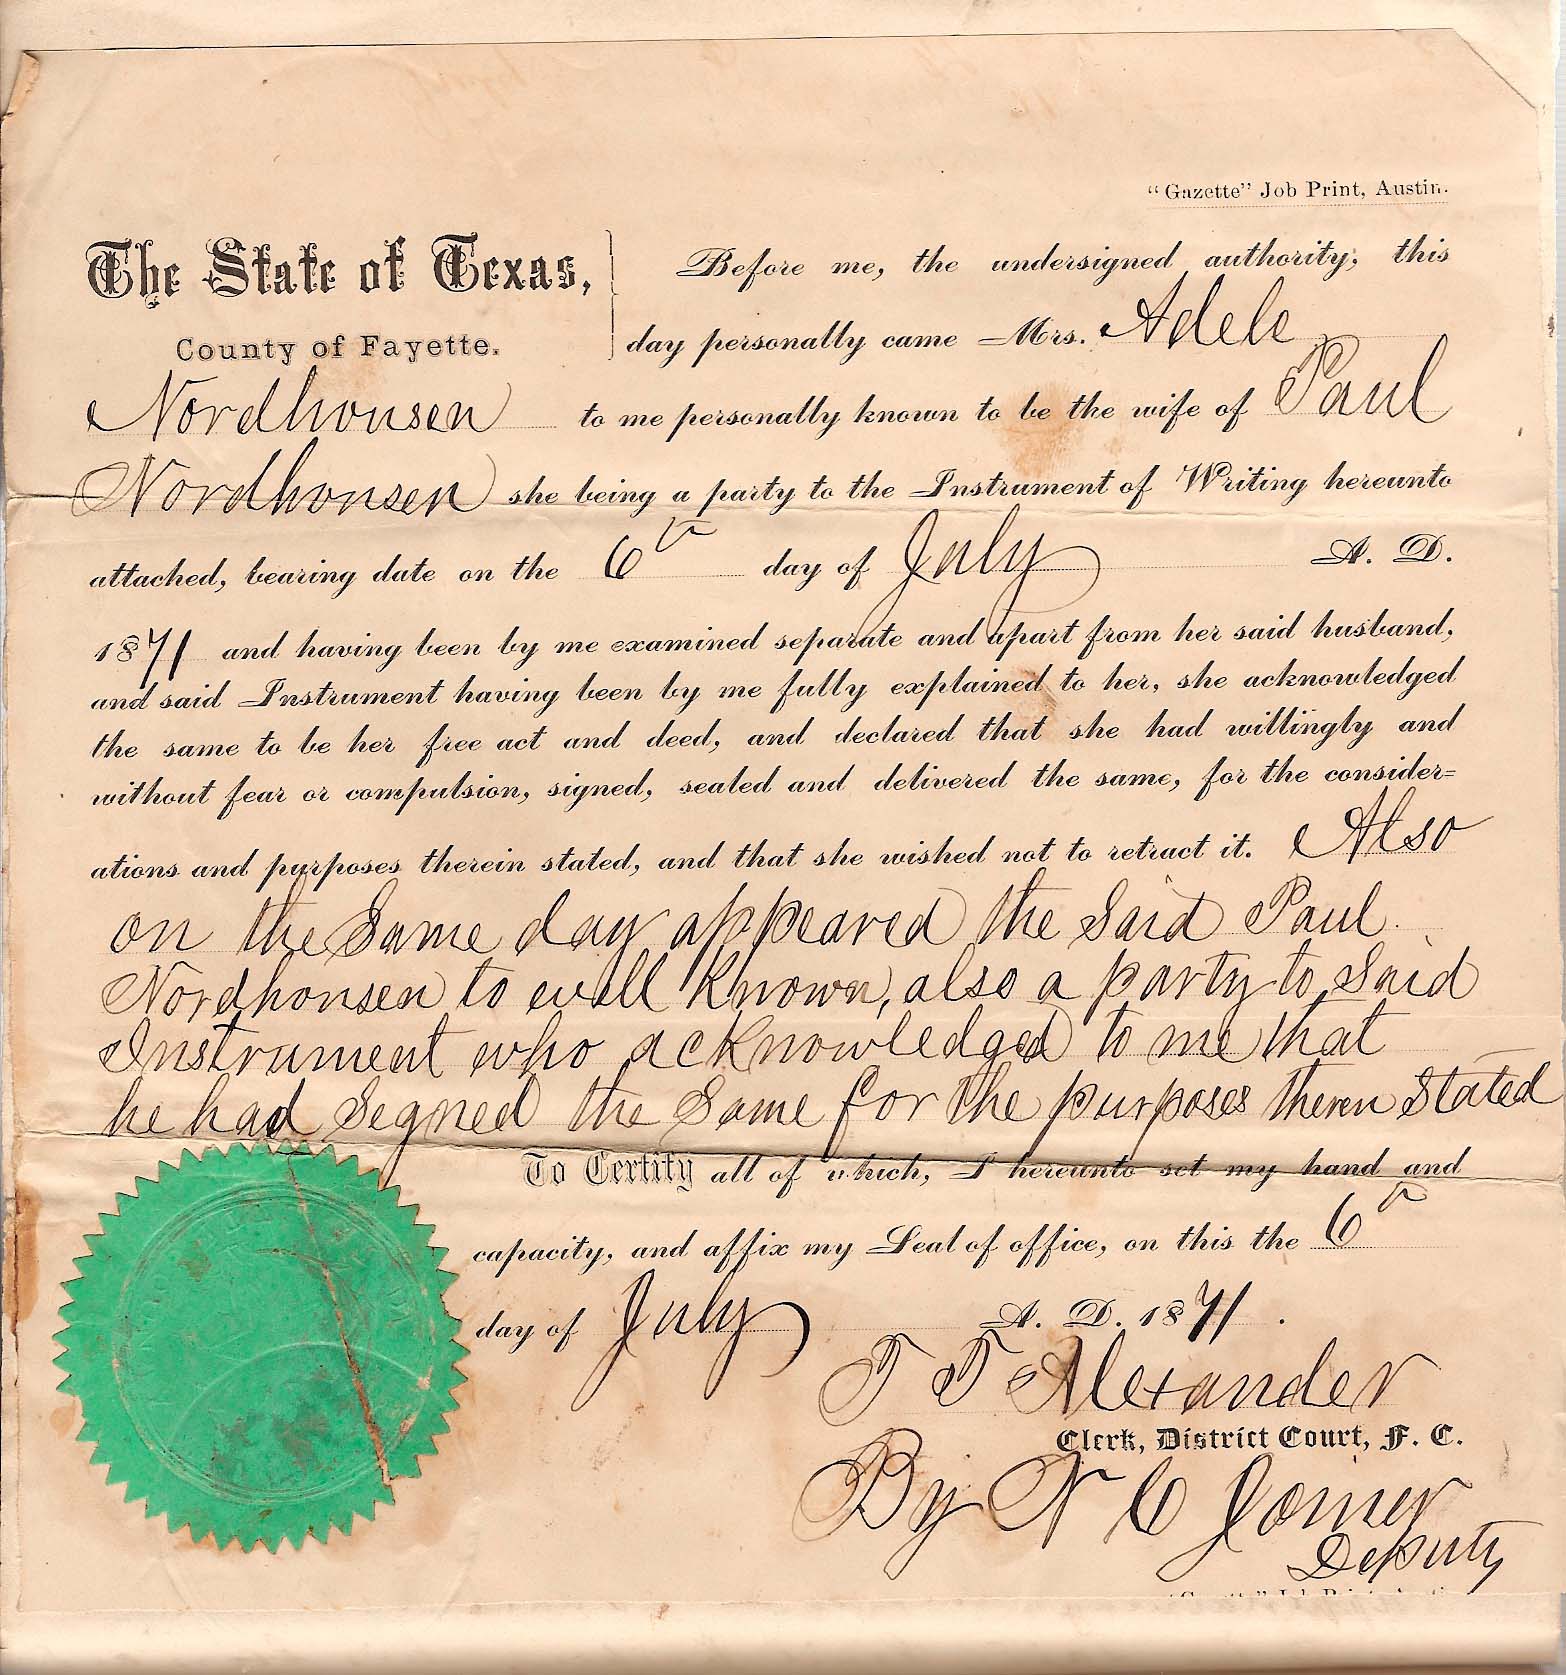 "Gazette" Job Print, Austin.
The State of Texas,
County of Fayette.
Before me, the undersigned authority, this
day personally came Mrs. Adele
Nordhousen to me personally known to be the wife of Paul
Nordhousen she being a party to the Instrument of Writing hereunto
attached, bearing date on the 6th day of July A. D.
1871 and having been by me examined separate and apart from her said husband,
and said Instrument having been by me fully explained to her, she acknowledged
the same to be her free act and deed, and declared that she had willingly and
without fear or compulsion, signed, sealed and delivered the same, for the consider=
ations and purposes therein stated, and that she wished not to retract it. Also
on the Same day appeared the Said Paul
Nordhonsen to well Known, also a party to Said
Instrument who acknowledged to me that
he had Segned the Same for the purposes theren Stated
To Certify all of which, I hereunto set my hand and
capacity, and affix my Seal of office, on this the 6th
day of July A. D. 1871.
T T Alexander
Clerk, District Court, F. C.
By N C Joiner
Deputy